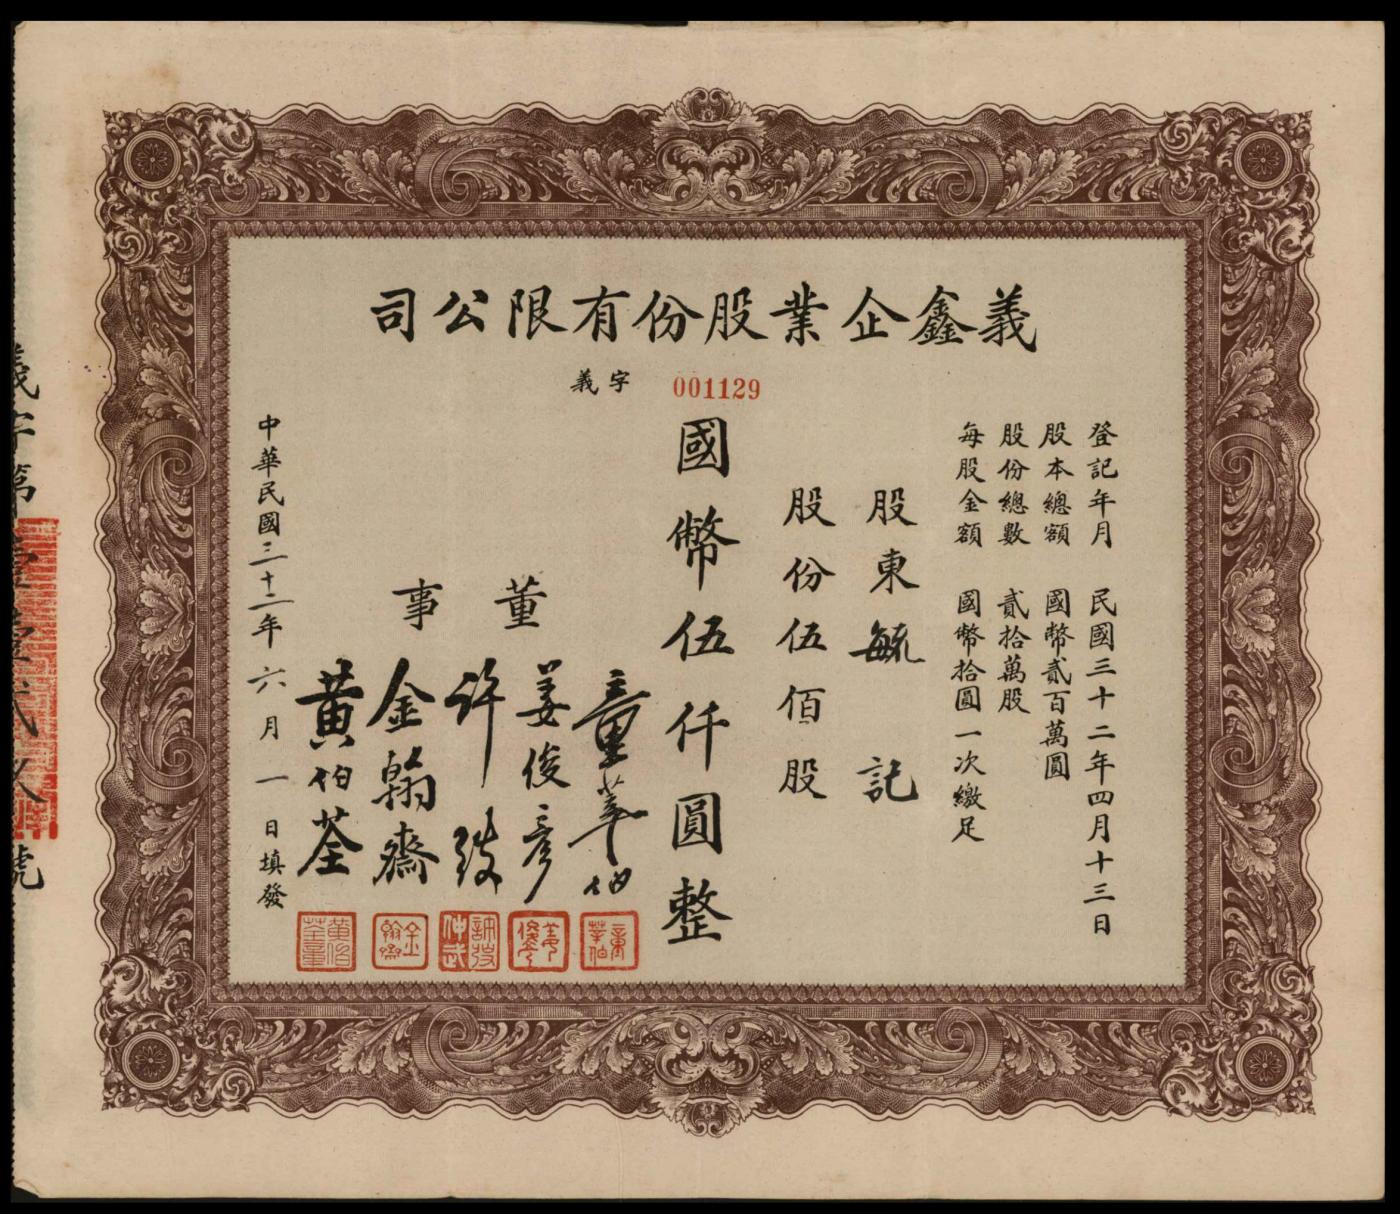 義鑫企業股份有限公司
義字 001129
登記年月 民國三十二年四月十三日
股本總額 國幣貳百萬圓
股份總數 貳拾萬股
每股金額 國幣拾圓一次繳足
股東毓記
股份伍佰股
國幣伍仟圓整
董事
童莘伯
姜俊彥
許
金翰齋
黃伯荃
中華民國三十二年六月一日填發
義字第壹壹貳玖號